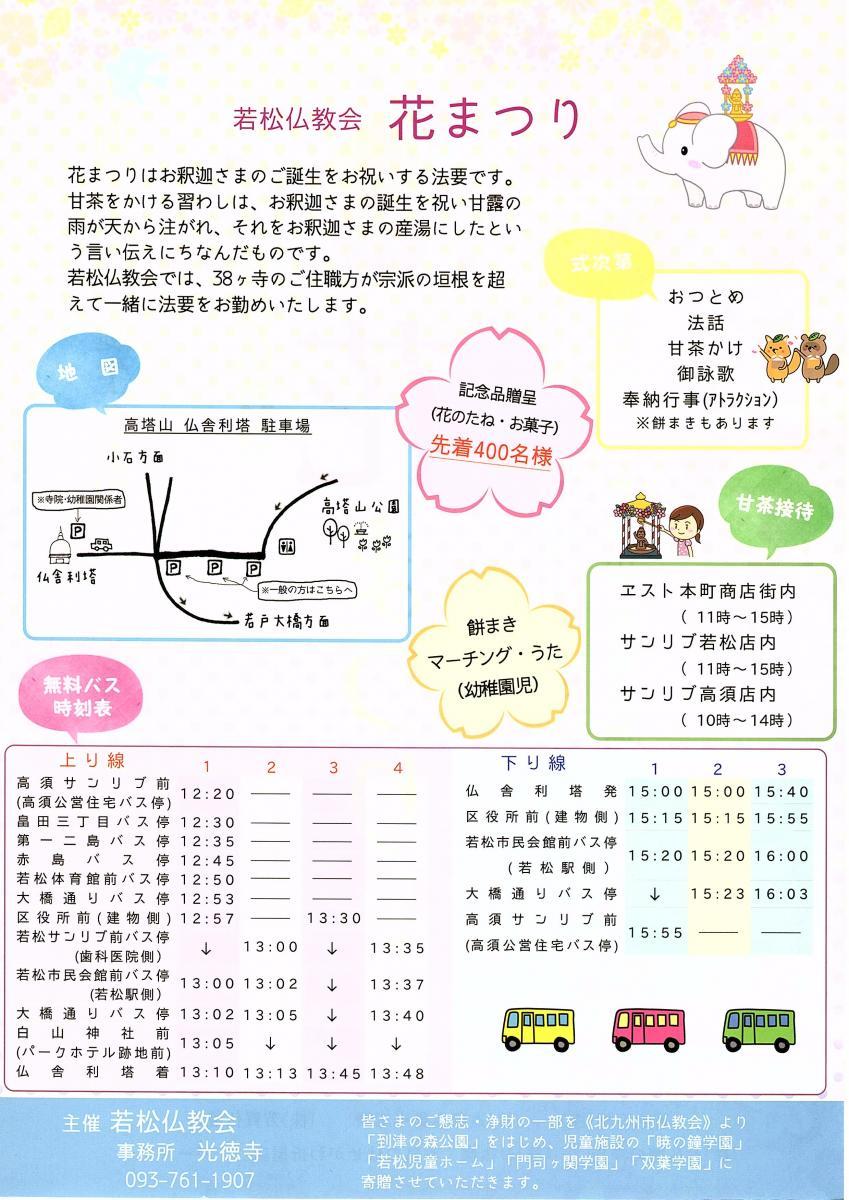 若松仏教会 花まつり
花まつりはお釈迦さまのご誕生をお祝いする法要です。
甘茶をかける習わしは、お釈迦さまの誕生を祝い甘露の
雨が天から注がれ、それをお釈迦さまの産湯にしたとい
う言い伝えにちなんだものです。
若松仏教会では、38ヶ寺のご住職方が宗派の垣根を超
えて一緒に法要をお勤めいたします。
式次第
おつとめ
法話
甘茶かけ
御詠歌
奉納行事(アトラクション)
※餅まきもあります
地図
高塔山 仏舎利塔 駐車場
小石方面
※寺院・幼稚園関係者
P
仏舎利塔
高塔山公園
P P P
※一般の方はこちらへ
若戸大橋方面
記念品贈呈
(花のたね・お菓子)
先着400名様
甘茶接待
ヱスト本町商店街内
( 11時～15時)
サンリブ若松店内
( 11時～15時)
サンリブ高須店内
( 10時～14時)
餅まき
マーチング・うた
(幼稚園児)
無料バス
時刻表
上り線 1 2 3 4
高須サンリブ前
(高須公営住宅バス停) 12:20 ── ── ──
畠田三丁目バス停 12:30 ── ── ──
第一二島バス停 12:35 ── ── ──
赤島バス停 12:45 ── ── ──
若松体育館前バス停 12:50 ── ── ──
大橋通りバス停 12:53 ── ── ──
区役所前(建物側) 12:57 ── 13:30 ──
若松サンリブ前バス停
(歯科医院側) ↓ 13:00 ↓ 13:35
若松市民会館前バス停
(若松駅側) 13:00 13:02 ↓ 13:37
大橋通りバス停 13:02 13:05 ↓ 13:40
白山神社前
(パークホテル跡地前) 13:05 ↓ ↓ ↓
仏舎利塔着 13:10 13:13 13:45 13:48
下り線 1 2 3
仏舎利塔発 15:00 15:00 15:40
区役所前(建物側) 15:15 15:15 15:55
若松市民会館前バス停
(若松駅側) 15:20 15:20 16:00
大橋通りバス停 ↓ 15:23 16:03
高須サンリブ前
(高須公営住宅バス停) 15:55 ── ──
主催 若松仏教会
事務所 光徳寺
093-761-1907
皆さまのご懇志・浄財の一部を《北九州市仏教会》より
「到津の森公園」をはじめ、児童施設の「暁の鐘学園」
「若松児童ホーム」「門司ヶ関学園」「双葉学園」に
寄贈させていただきます。